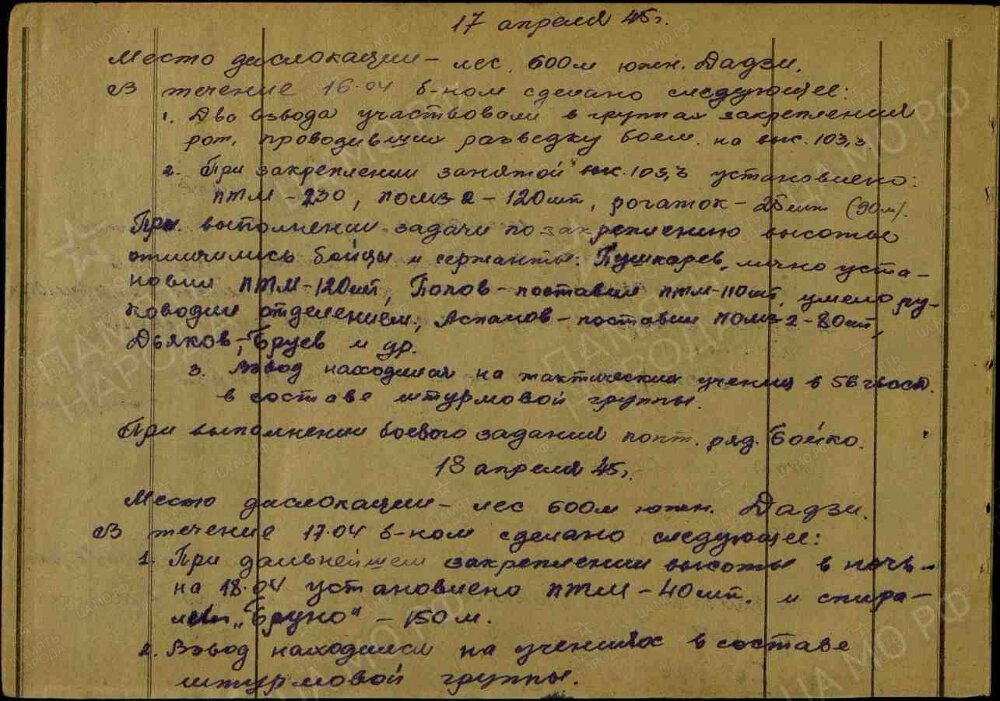 17 апреля 45 г.
Место дислокации – лес 600 м южн. Дадзи.
В течение 16.04 б-ном сделано следующее:
1. Два взвода участвовали в группах закрепления
рот, проводивших разведку боем на выс. 103,3
2. При закреплении занятой выс. 103,3 установлено:
ПТМ – 230, ПОМЗ-2 – 120 шт, рогаток – (90 м).
При выполнении задачи по закреплению высоты
отличились бойцы и сержанты: Пушкарев, лично уста-
новил ПТМ – 120 шт, Попов – поставил ПТМ – 110 шт, умело ру-
ководил отделением, Аспанов – поставил ПОМЗ-2 – 80 шт,
Дьяков, Бруев и др.
3. Взвод находился на тактических учениях в 56 гвсд
в составе штурмовой группы.
При выполнении боевого задания ряд. Бойко.
18 апреля 45 г.
Место дислокации – лес 600 м южн. Дадзи.
В течение 17.04 б-ном сделано следующее:
1. При дальнейшем закреплении высоты в ночь
на 18.04 установлено ПТМ – 40 шт. и спира-
лей „Бруно" – 150 м.
2. Взвод находился на учениях в составе
штурмовой группы.